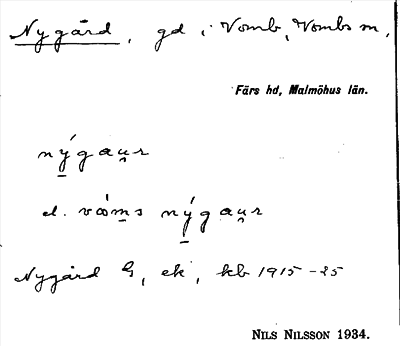 Nygård, gd i Vomb, Vombs m,
Färs hd, Malmöhus län.
nýgau̯r
el. vòms nýgau̯r
Nygård G, ek, kb 1915-25
NILS NILSSON 1934.